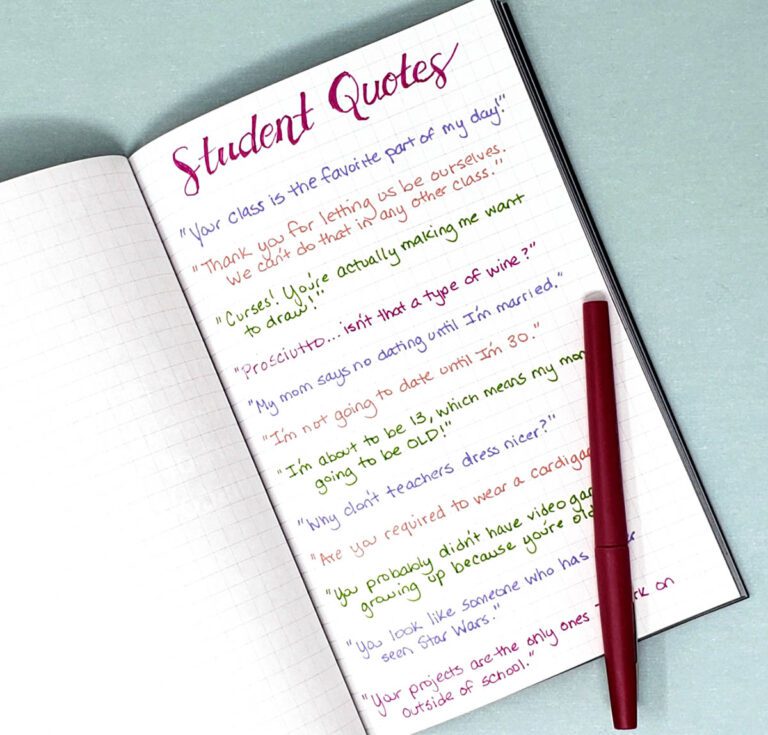 Student Quotes
"Your class is the favorite part of my day!"
"Thank you for letting us be ourselves.
We can't do that in any other class."
"Curses! You're actually making me want
to draw!"
"Prosciutto... isn't that a type of wine?"
"My mom says no dating until I'm married."
"I'm not going to date until I'm 30."
"I'm about to be 13, which means my mom
going to be OLD!"
"Why don't teachers dress nicer?"
"Are you required to wear a
"You probably didn't have video
growing up because you're
"You look like someone who has
seen Star Wars."
"Your projects are the only ones on
outside of school."